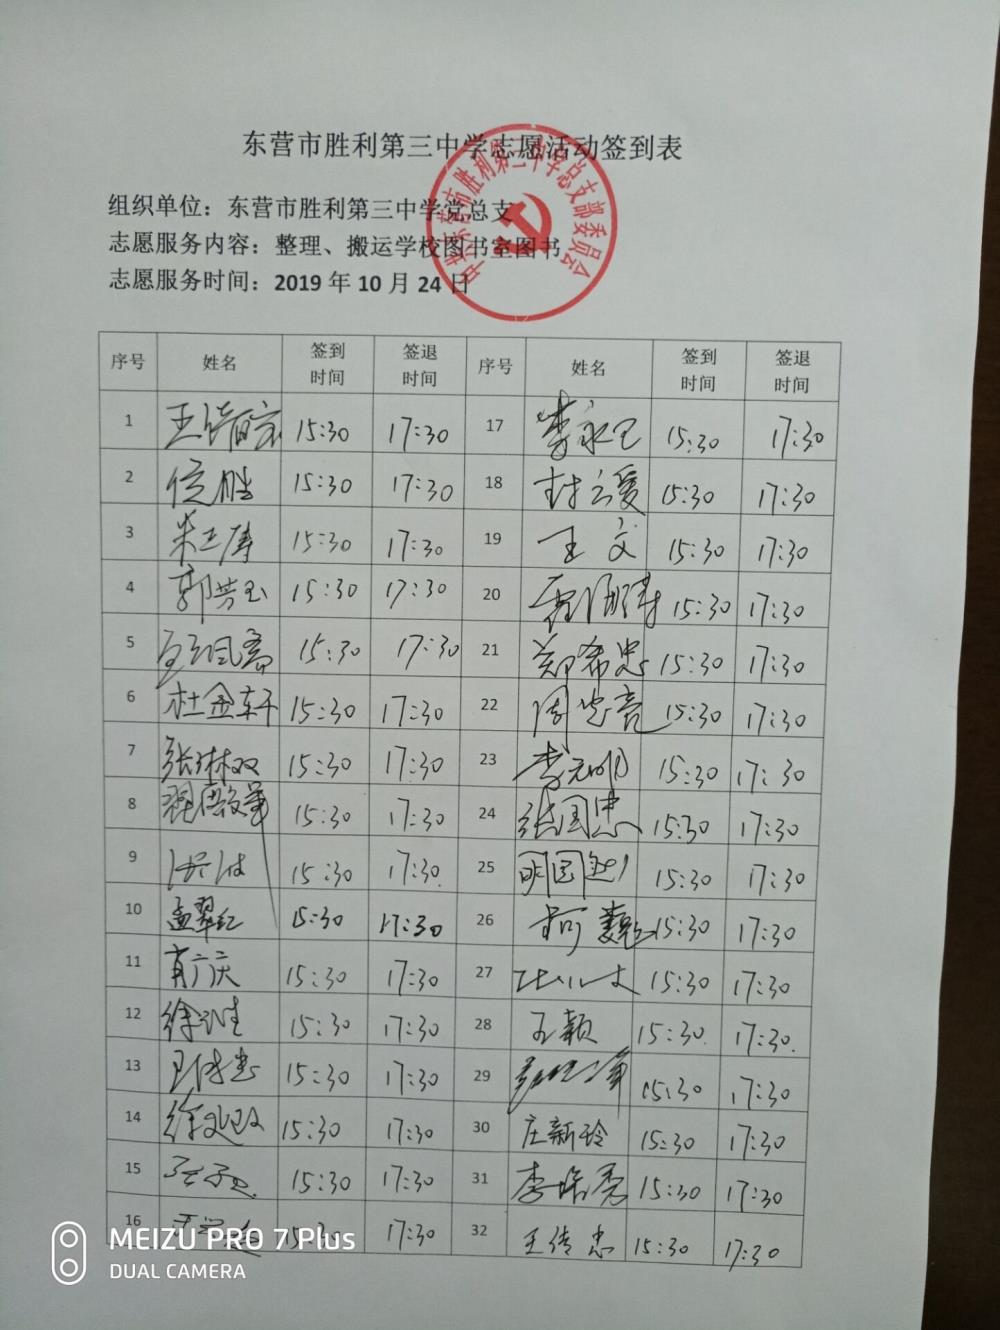 东营市胜利第三中学志愿活动签到表
中共东营市胜利第三中学总支部委员会
组织单位：东营市胜利第三中学党总支
志愿服务内容：整理、搬运学校图书室图书
志愿服务时间：2019 年 10 月 24 日
序号 姓名 签到时间 签退时间 序号 姓名 签到时间 签退时间
1 15:30 17:30 17 15:30 17:30
2 15:30 17:30 18 封云爱 15:30 17:30
3 15:30 17:30 19 王文 15:30 17:30
4 郭芳玉 15:30 17:30 20 15:30 17:30
5 15:30 17:30 21 郑希忠 15:30 17:30
6 杜金轩 15:30 17:30 22 周忠亮 15:30 17:30
7 张琳双 15:30 17:30 23 李元明 15:30 17:30
8 15:30 17:30 24 张国忠 15:30 17:30
9 洪波 15:30 17:30 25 15:30 17:30
10 孟翠红 15:30 17:30 26 15:30 17:30
11 肖广庆 15:30 17:30 27 15:30 17:30
12 15:30 17:30 28 王颖 15:30 17:30
13 15:30 17:30 29 15:30 17:30
14 15:30 17:30 30 庄新玲 15:30 17:30
15 15:30 17:30 31 15:30 17:30
16 15:30 17:30 32 王传忠 15:30 17:30
MEIZU PRO 7 Plus
DUAL CAMERA